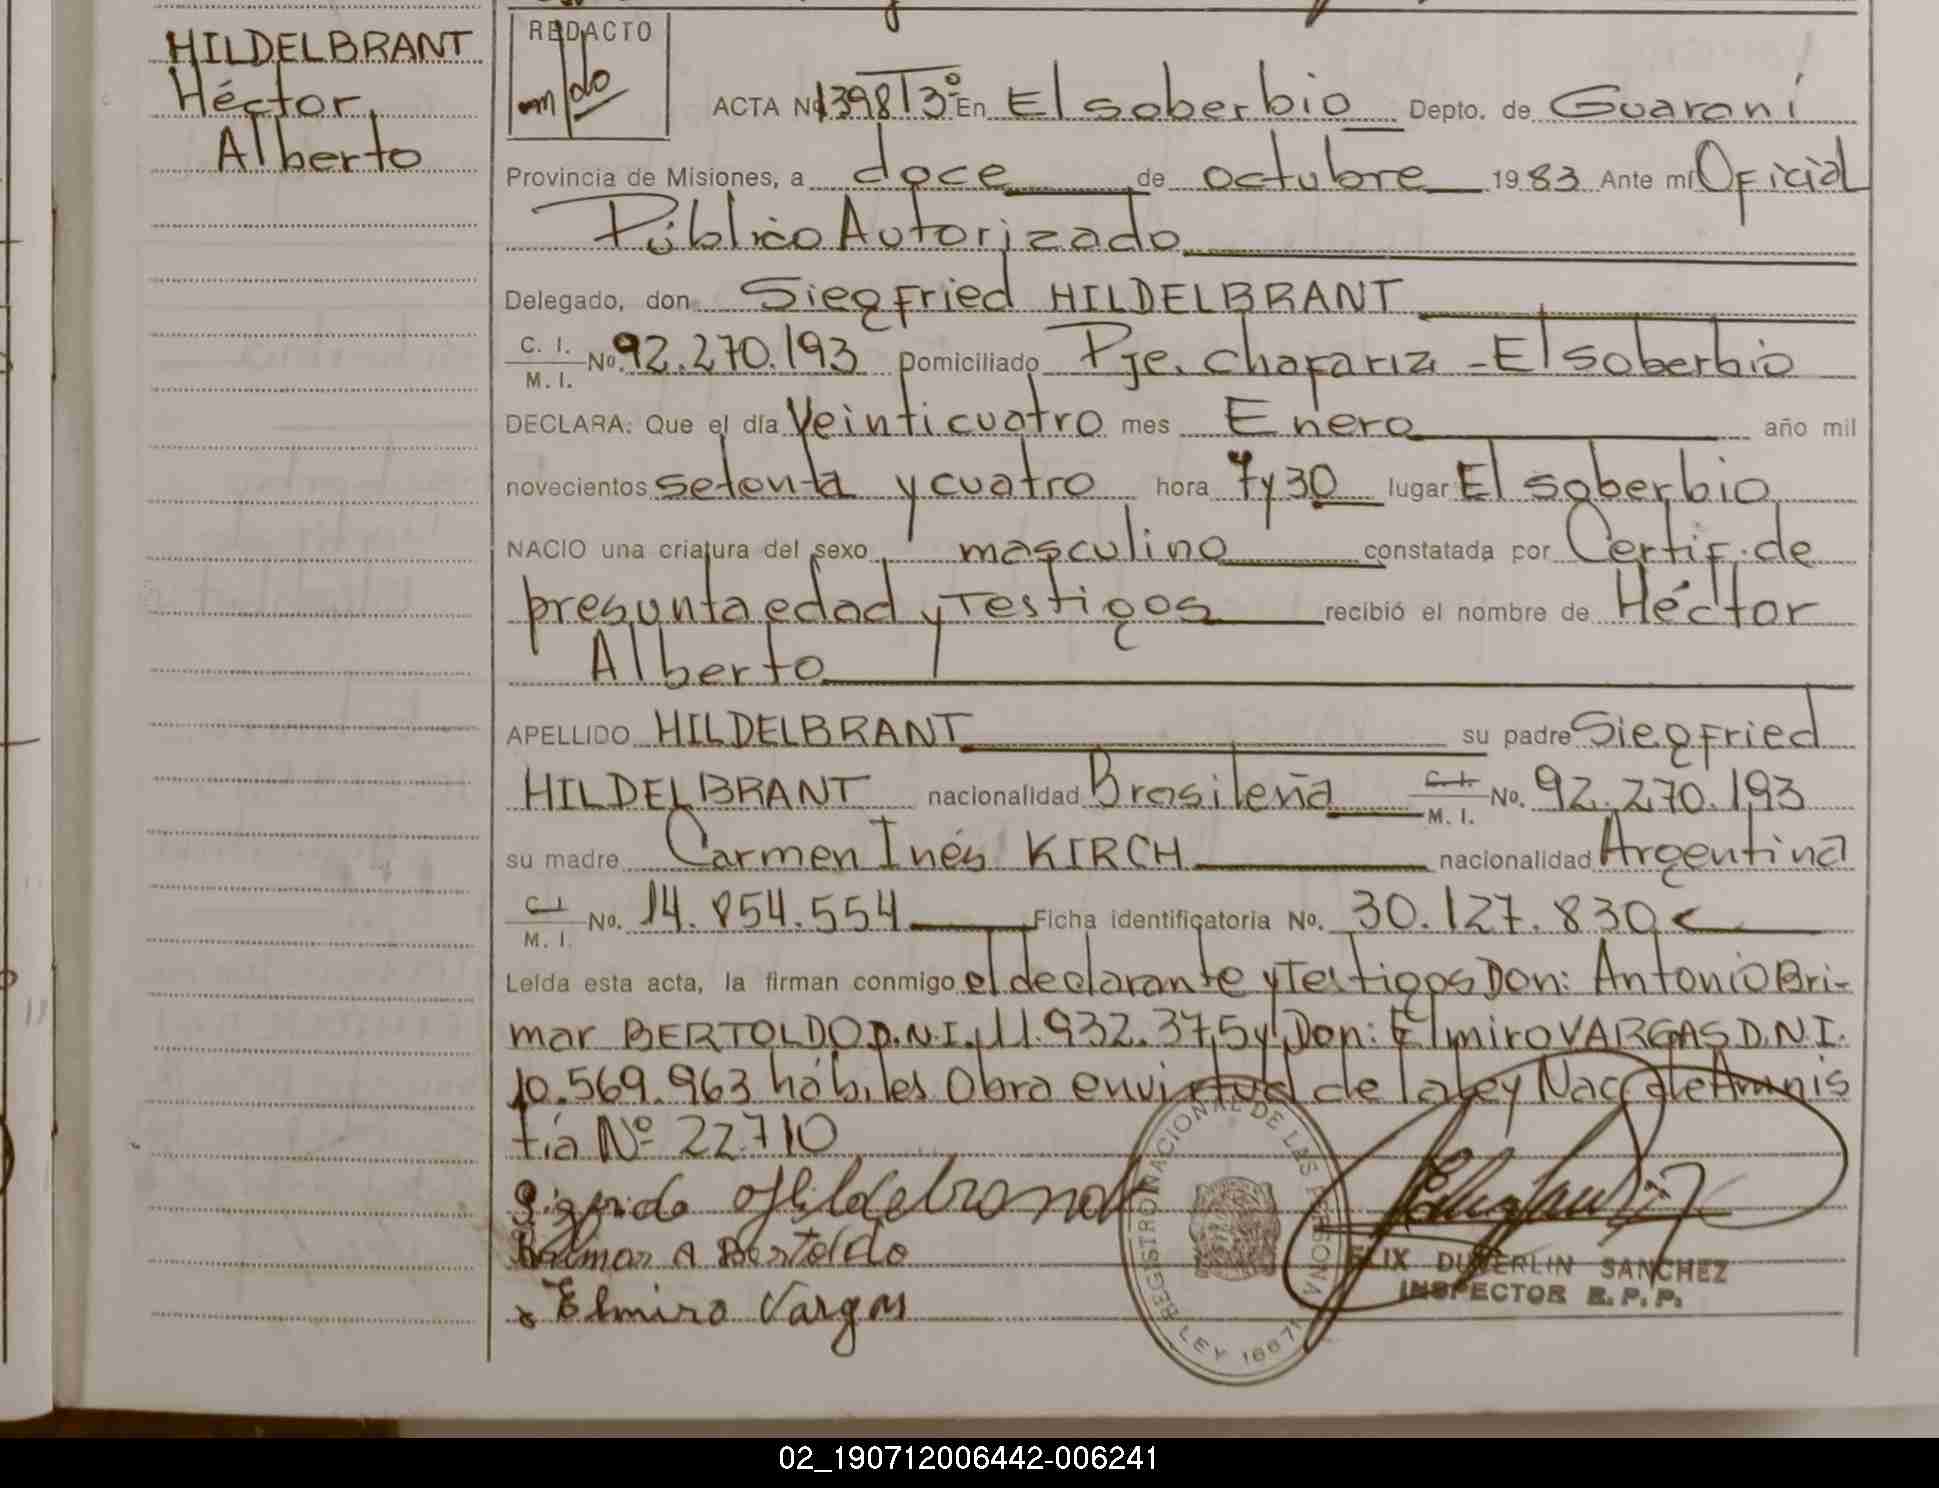 HILDELBRANT
Héctor
Alberto
REDACTO
ACTA Nº 1398 T3º En El soberbio Depto. de Guaraní
Provincia de Misiones, a doce de octubre 1983 Ante mí Oficial
Público Autorizado
Delegado, don Siegfried HILDELBRANT
C. I.
M. I. No. 92.270.193 Domiciliado Pje. chafariz - El soberbio
DECLARA: Que el día Veinticuatro mes Enero año mil
novecientos setenta y cuatro hora 7 y 30 lugar El soberbio
NACIO una criatura del sexo masculino constatada por Certif. de
presunta edad y Testigos recibió el nombre de Héctor
Alberto
APELLIDO HILDELBRANT su padre Siegfried
HILDELBRANT nacionalidad Brasileña C. I. M. I. No. 92.270.193
su madre Carmen Inés KIRCH nacionalidad Argentina
C. I.
M. I. No. 14.854.554 Ficha identificatoria No. 30.127.830
Leída esta acta, la firman conmigo el declarante y Testigos Don: Antonio Bri-
mar BERTOLDO D.N.I. 11.932.375 y Don: Elmiro VARGAS D.N.I.
10.569.963 hábiles Obra en virtud de la ley Nac de Amnis
tía Nº 22.710
Sigfrido Hildebrand
A Bertoldo
Elmiro Vargas
REGISTRO NACIONAL DE LAS PERSONAS
LEY 16671
FELIX DUBERLIN SANCHEZ
INSPECTOR R. P. P.
02_190712006442-006241